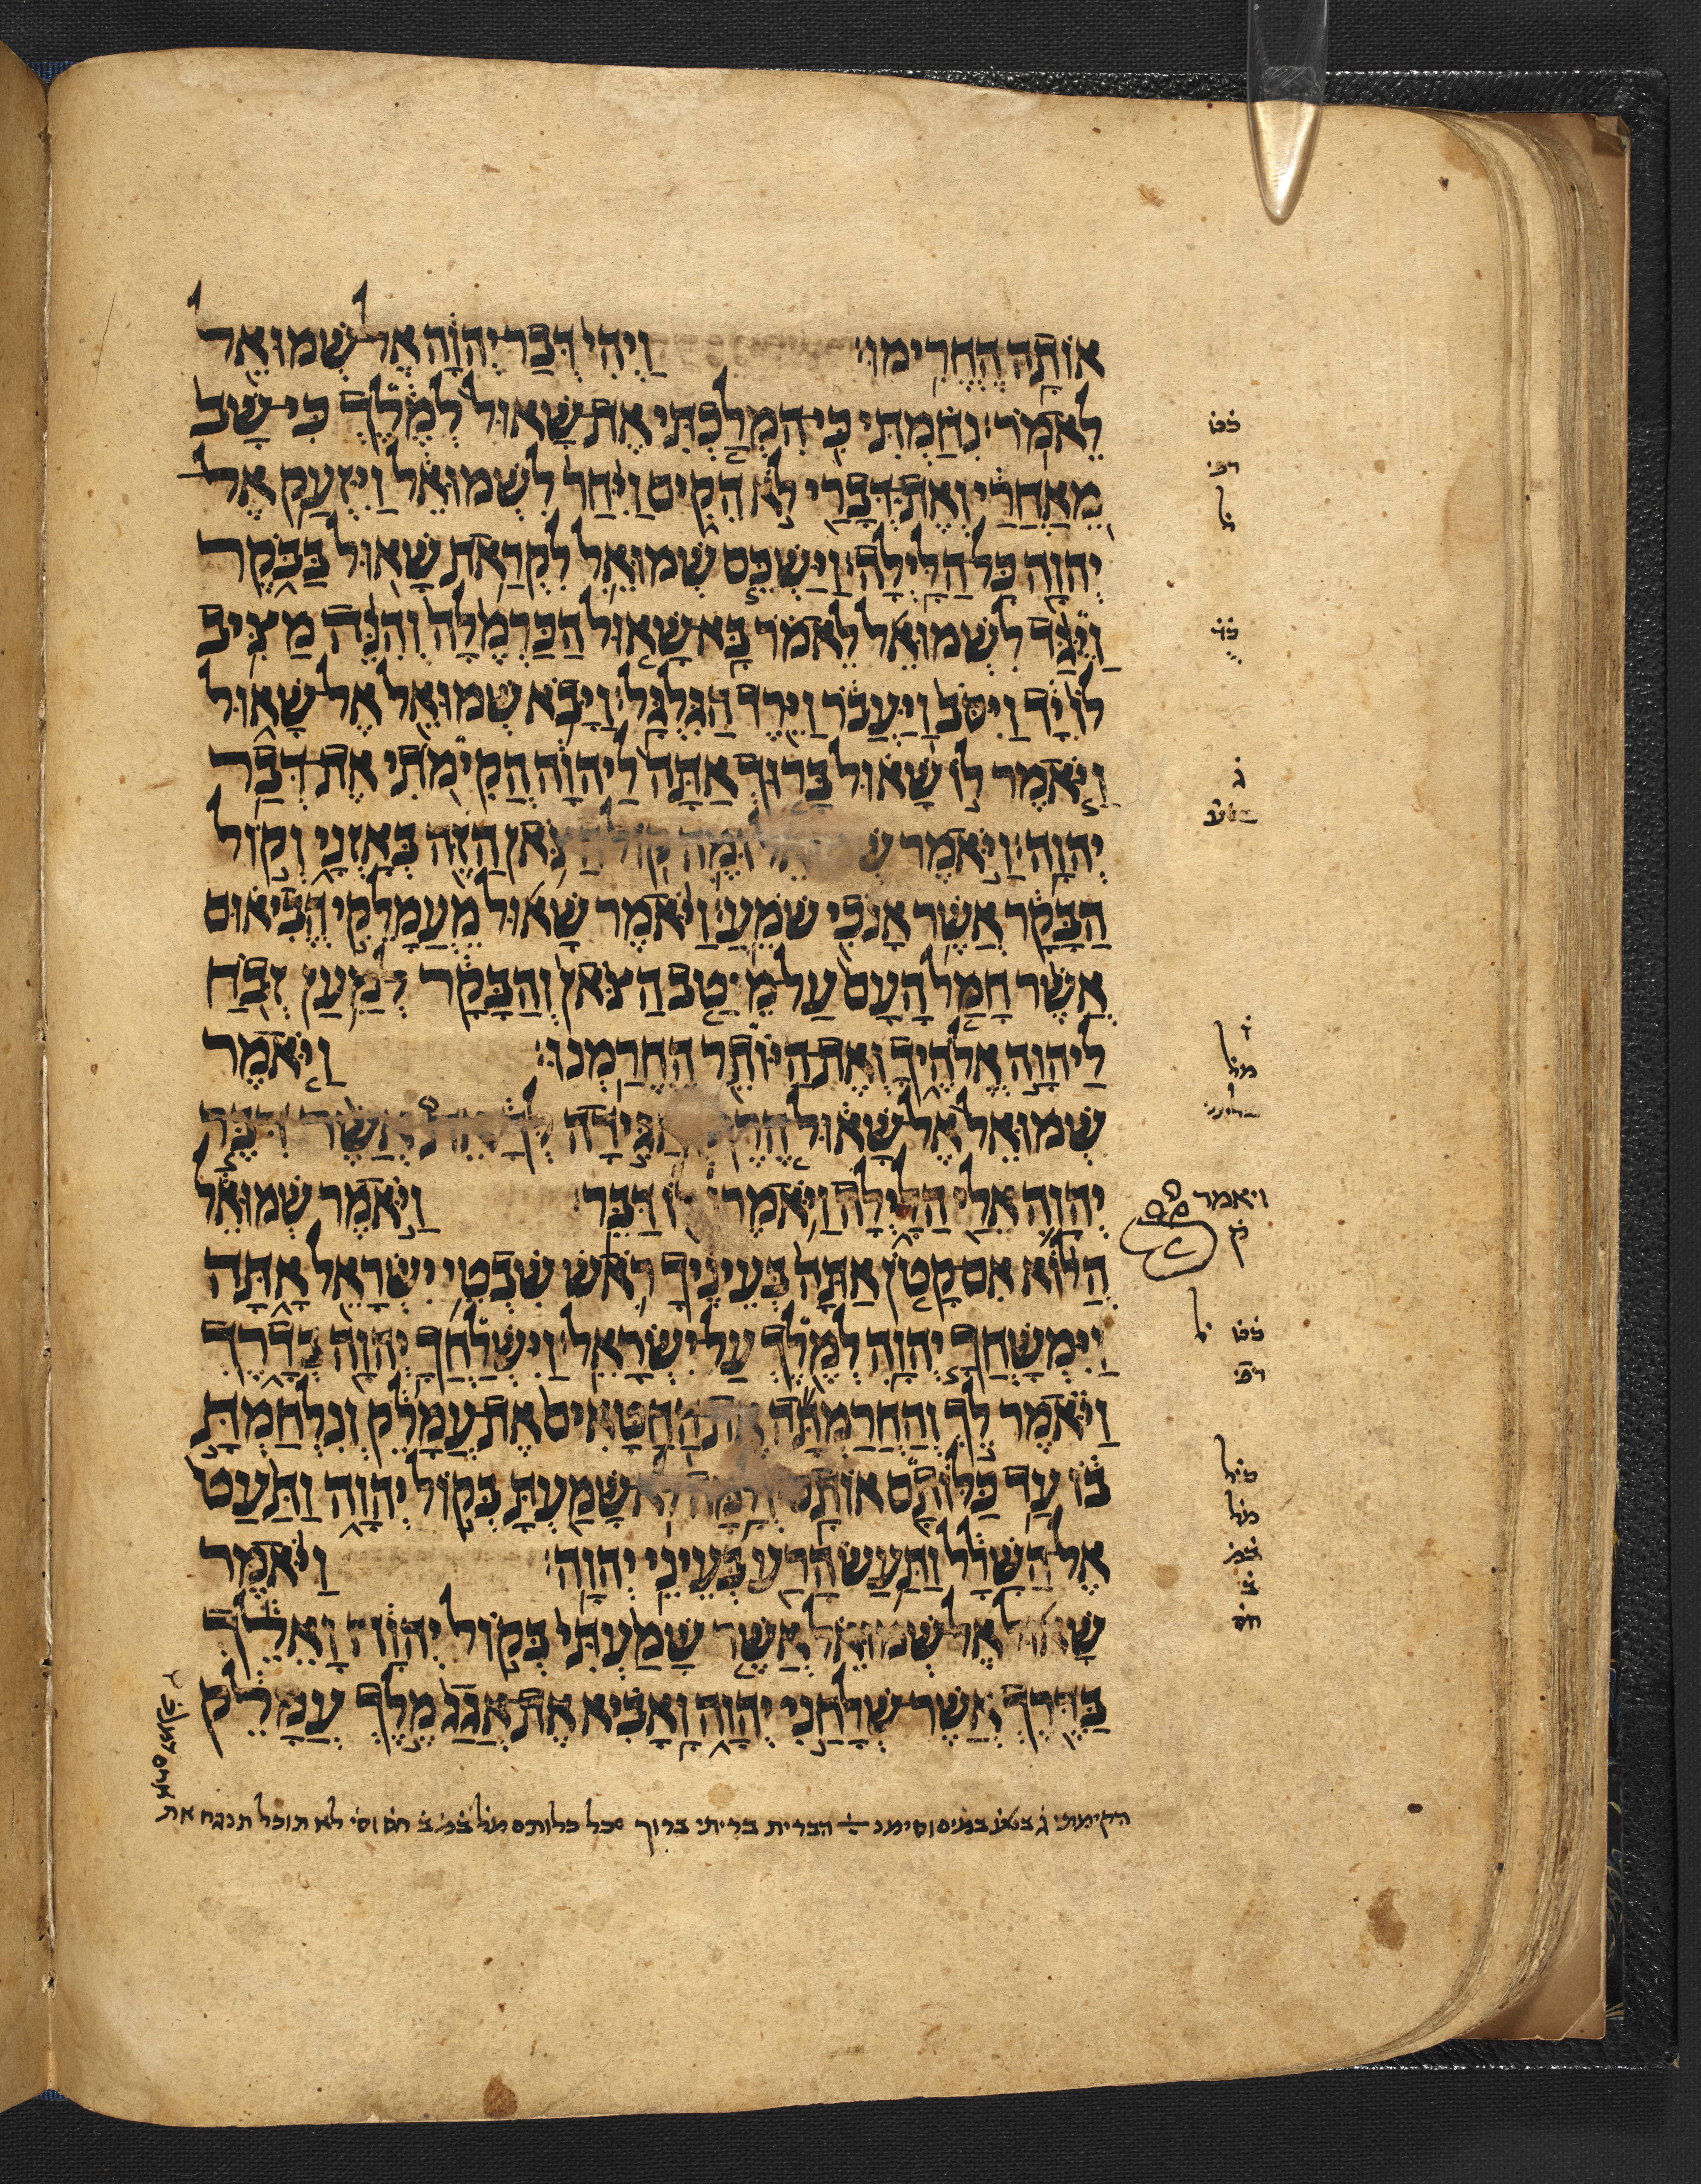 אוֹתָהּ הֶחֱרִימוּ׃ וַיְהִי דְּבַר יְהוָה אֶל שְׁמוּאֵל
לֵאמֹר׃ נִחַמְתִּי כִּי הִמְלַכְתִּי אֶת שָׁאוּל לְמֶלֶךְ כִּי שָׁב
מֵאַחֲרַי וְאֶת דְּבָרַי לֹא הֵקִים וַיִּחַר לִשְׁמוּאֵל וַיִּזְעַק אֶל
יְהוָה כָּל הַלָּיְלָה׃ וַיַּשְׁכֵּם שְׁמוּאֵל לִקְרַאת שָׁאוּל בַּבֹּקֶר
וַיֻּגַּד לִשְׁמוּאֵל לֵאמֹר בָּא שָׁאוּל הַכַּרְמֶלָה וְהִנֵּה מַצִּיב
לוֹ יָד וַיִּסֹּב וַיַּעֲבֹר וַיֵּרֶד הַגִּלְגָּל׃ וַיָּבֹא שְׁמוּאֵל אֶל שָׁאוּל
וַיֹּאמֶר לוֹ שָׁאוּל בָּרוּךְ אַתָּה לַיהוָה הֲקִימֹתִי אֶת דְּבַר
יְהוָה׃ וַיֹּאמֶר וּמֶה קוֹל הַצֹּאן הַזֶּה בְּאָזְנָי וְקוֹל
הַבָּקָר אֲשֶׁר אָנֹכִי שֹׁמֵעַ׃ וַיֹּאמֶר שָׁאוּל מֵעֲמָלֵקִי הֱבִיאוּם
אֲשֶׁר חָמַל הָעָם עַל מֵיטַב הַצֹּאן וְהַבָּקָר לְמַעַן זְבֹחַ
לַיהוָה אֱלֹהֶיךָ וְאֶת הַיּוֹתֵר הֶחֱרַמְנוּ׃ וַיֹּאמֶר
שְׁמוּאֵל אֶל שָׁאוּל הֶרֶף וְאַגִּידָה לְּךָ אֵת אֲשֶׁר דִּבֶּר
יְהוָה אֵלַי הַלָּיְלָה וַיֹּאמְרוּ לוֹ דַּבֵּר׃ וַיֹּאמֶר שְׁמוּאֵל
הֲלוֹא אִם קָטֹן אַתָּה בְּעֵינֶיךָ רֹאשׁ שִׁבְטֵי יִשְׂרָאֵל אָתָּה
וַיִּמְשָׁחֲךָ יְהוָה לְמֶלֶךְ עַל יִשְׂרָאֵל׃ וַיִּשְׁלָחֲךָ יְהוָה בְּדָרֶךְ
וַיֹּאמֶר לֵךְ וְהַחֲרַמְתָּה אֶת הַחַטָּאִים אֶת עֲמָלֵק וְנִלְחַמְתָּ
בוֹ עַד כַּלּוֹתָם אוֹתָם׃ וְלָמָּה לֹא שָׁמַעְתָּ בְּקוֹל יְהוָה וַתַּעַט
אֶל הַשָּׁלָל וַתַּעַשׂ הָרַע בְּעֵינֵי יְהוָה׃ וַיֹּאמֶר
שָׁאוּל אֶל שְׁמוּאֵל אֲשֶׁר שָׁמַעְתִּי בְּקוֹל יְהוָה וָאֵלֵךְ
בַּדֶּרֶךְ אֲשֶׁר שְׁלָחַנִי יְהוָה וָאָבִיא אֶת אֲגַג מֶלֶךְ עֲמָלֵק
ויאמר
ק
הברית בריתי ברוך כלותם לא תוכל